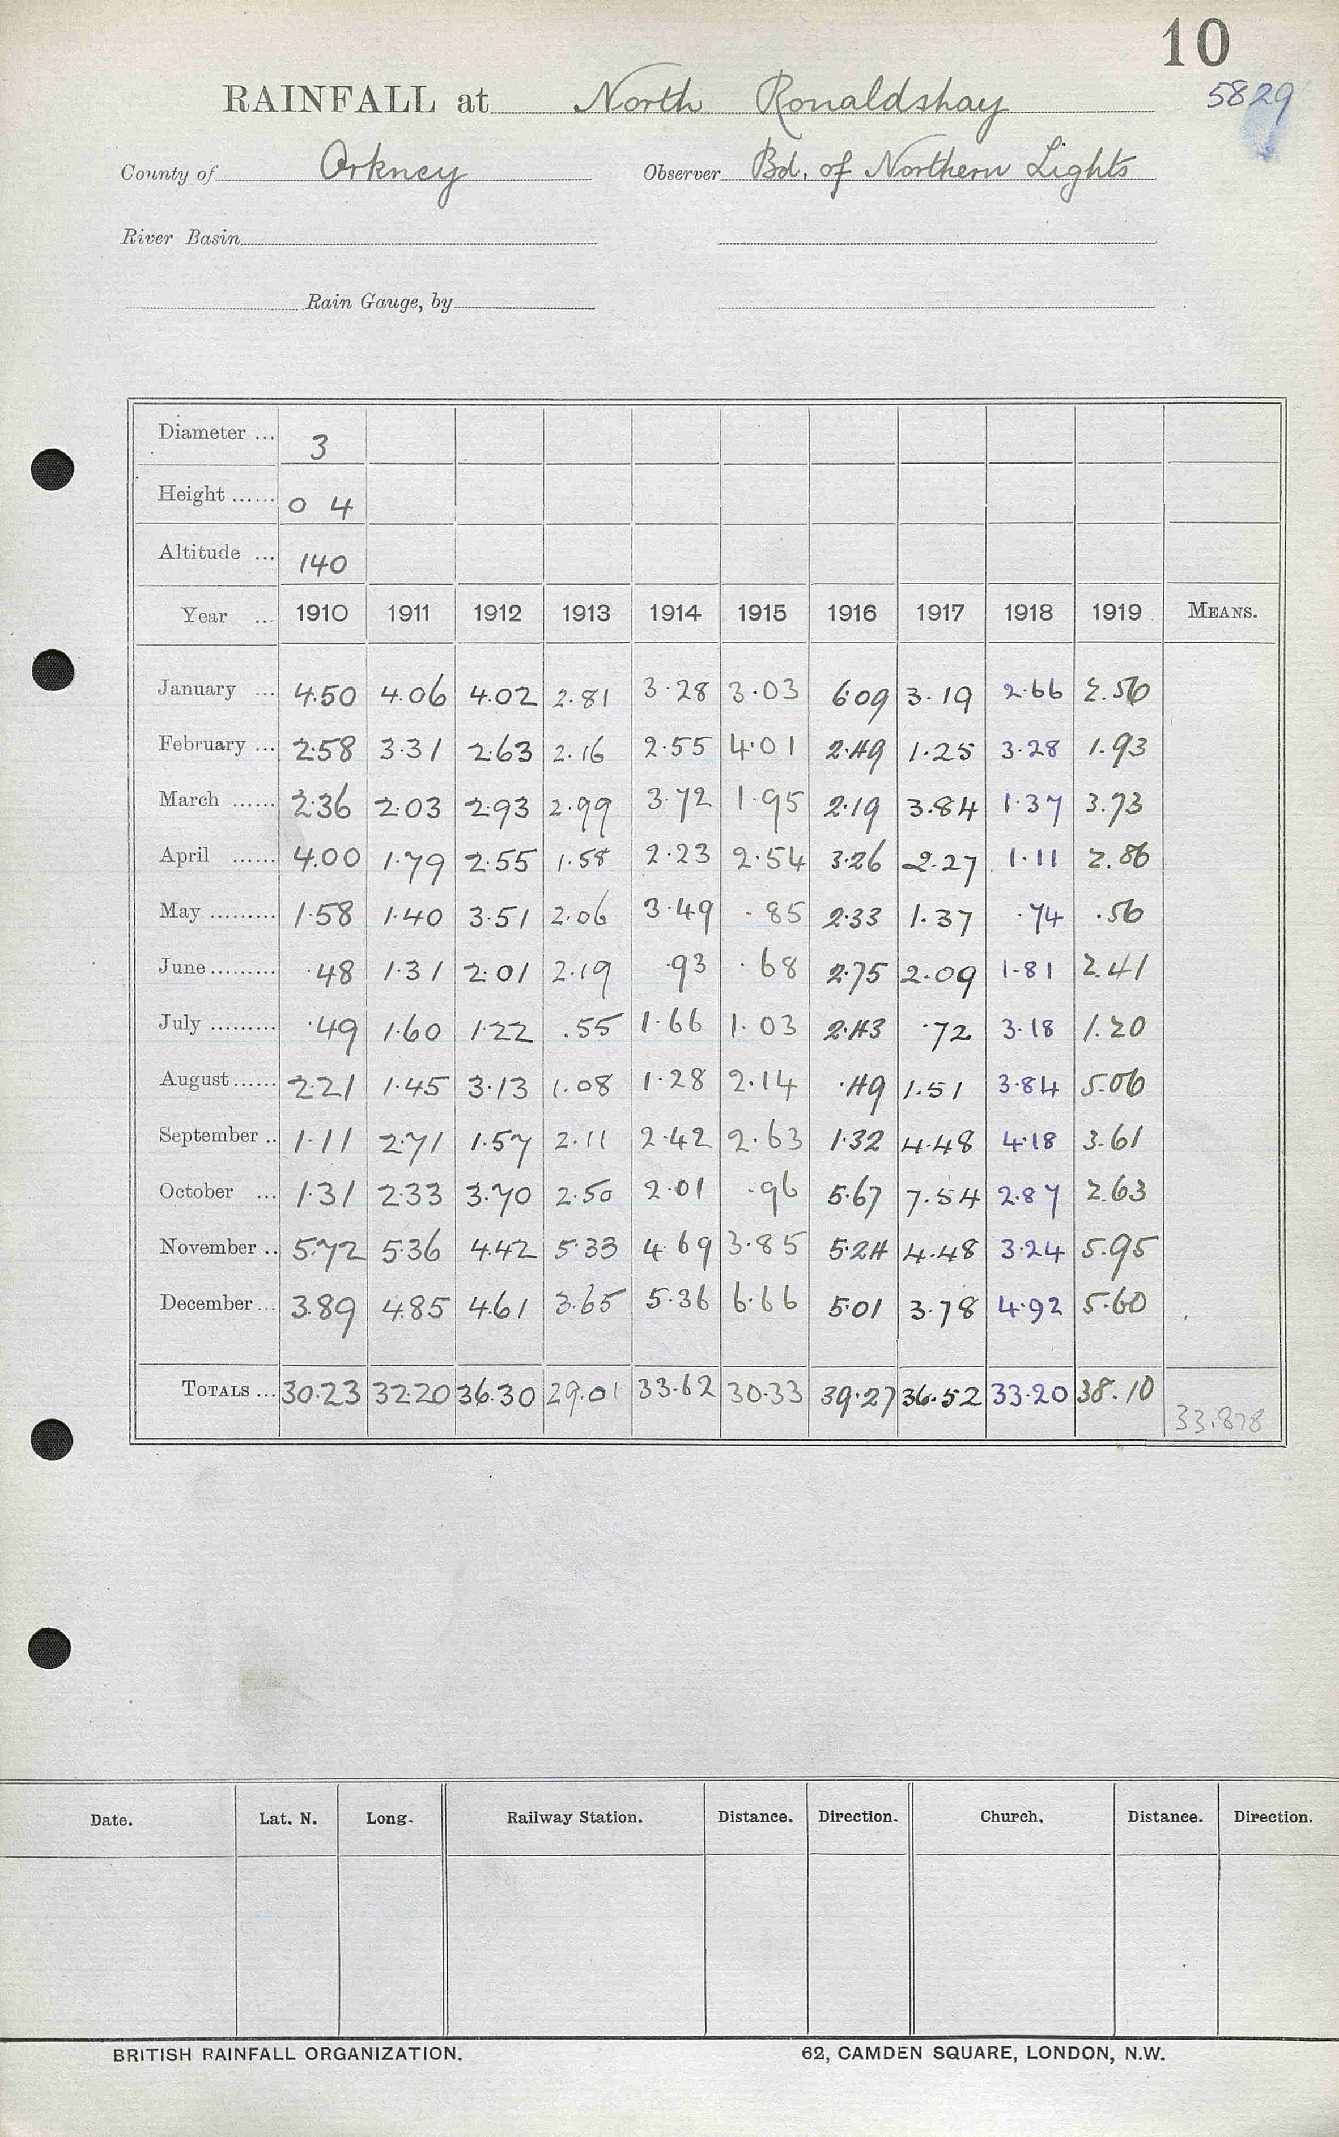 10
RAINFALL at North Ronaldshay 5829
County of Orkney Observer Bd. of Northern Lights
River Basin
Rain Gauge, by
Diameter ... 3
Height ...... 0 4
Altitude ... 140
Year ... 1910 1911 1912 1913 1914 1915 1916 1917 1918 1919 MEANS.
January ... 4.50 4.06 4.02 2.81 3.28 3.03 6.09 3.19 2.66 2.56
February ... 2.58 3.31 2.63 2.16 2.55 4.01 2.49 1.25 3.28 1.93
March ...... 2.36 2.03 2.93 2.99 3.72 1.95 2.19 3.84 1.37 3.73
April ...... 4.00 1.79 2.55 1.58 2.23 2.54 3.26 2.27 1.11 2.86
May ......... 1.58 1.40 3.51 2.06 3.49 .85 2.33 1.37 .74 .56
June ......... .48 1.31 2.01 2.19 .93 .68 2.75 2.09 1.81 2.41
July ......... .49 1.60 1.22 .55 1.66 1.03 2.43 .72 3.18 1.20
August ...... 2.21 1.45 3.13 1.08 1.28 2.14 .49 1.51 3.84 5.06
September .. 1.11 2.71 1.57 2.11 2.42 2.63 1.32 4.48 4.18 3.61
October ... 1.31 2.33 3.70 2.50 2.01 .96 5.67 7.54 2.87 2.63
November .. 5.72 5.36 4.42 5.33 4.69 3.85 5.24 4.48 3.24 5.95
December ... 3.89 4.85 4.61 3.65 5.36 6.66 5.01 3.78 4.92 5.60
TOTALS ... 30.23 32.20 36.30 29.01 33.62 30.33 39.27 36.52 33.20 38.10 33.878
Date. Lat. N. Long. Railway Station. Distance. Direction. Church. Distance. Direction.
BRITISH RAINFALL ORGANIZATION. 62, CAMDEN SQUARE, LONDON, N.W.